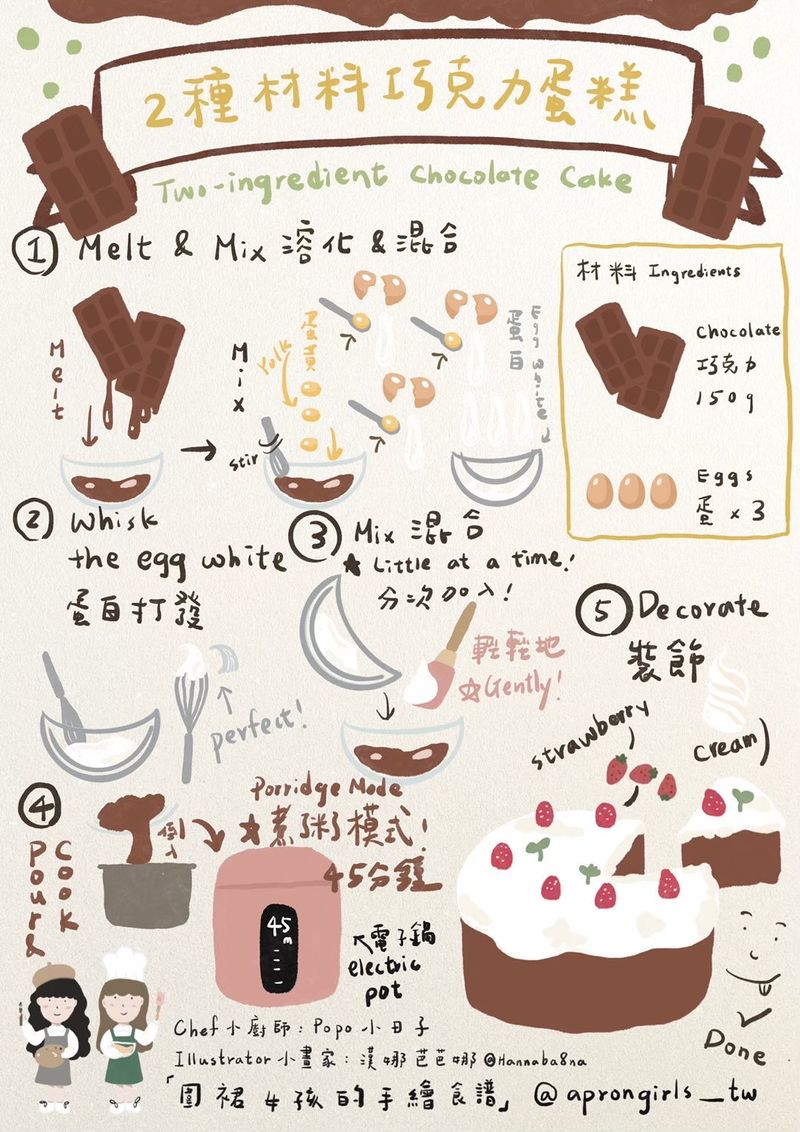 2種材料巧克力蛋糕
Two-ingredient Chocolate Cake
① Melt & Mix 溶化&混合
Melt
Mix
蛋黃
Yolk
stir
Egg white
蛋白
材料 Ingredients
Chocolate
巧克力
150g
Eggs
蛋 x 3
② Whisk
the egg white
蛋白打發
perfect!
③ Mix 混合
Little at a time!
分次加入!
輕輕地
Gently!
④ Pour & Cook
倒入
Porridge Mode
煮粥模式!
45分鐘
45
m
電子鍋
electric
pot
⑤ Decorate
裝飾
strawberry
cream
Done
Chef 小廚師:Popo 小日子
Illustrator 小畫家:漢娜芭芭娜 @Hannaba8na
「圍裙女孩的手繪食譜」 @aprongirls_tw